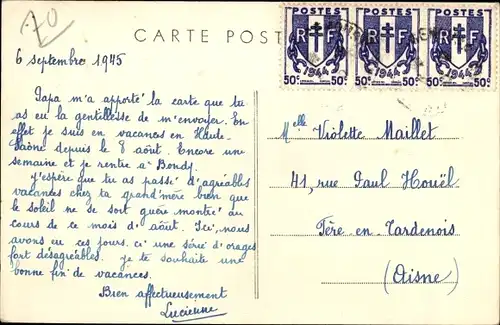 70
CARTE POST
POSTES POSTES POSTES
RF RF RF
1944 1944 1944
50c 50c 50c 50c 50c 50c
6 septembre 1945
Papa m'a apporté la carte que tu
as eu la gentillesse de m'envoyer. En
effet je suis en vacances en Haute
Saône depuis le 8 août. Encore une
semaine et je rentre à Bondy.
J'espère que tu as passé d'agréables
vacances chez ta grand'mère bien que
le soleil ne se soit guère montré au
cours de ce mois d'août. Ici, nous
avons eu ces jours-ci une série d'orages
fort désagréables. je te souhaite une
bonne fin de vacances.
Bien affectueusement
Lucienne
Melle Violette Maillet
41, rue Paul Houël
Fère-en-Tardenois
(Aisne)